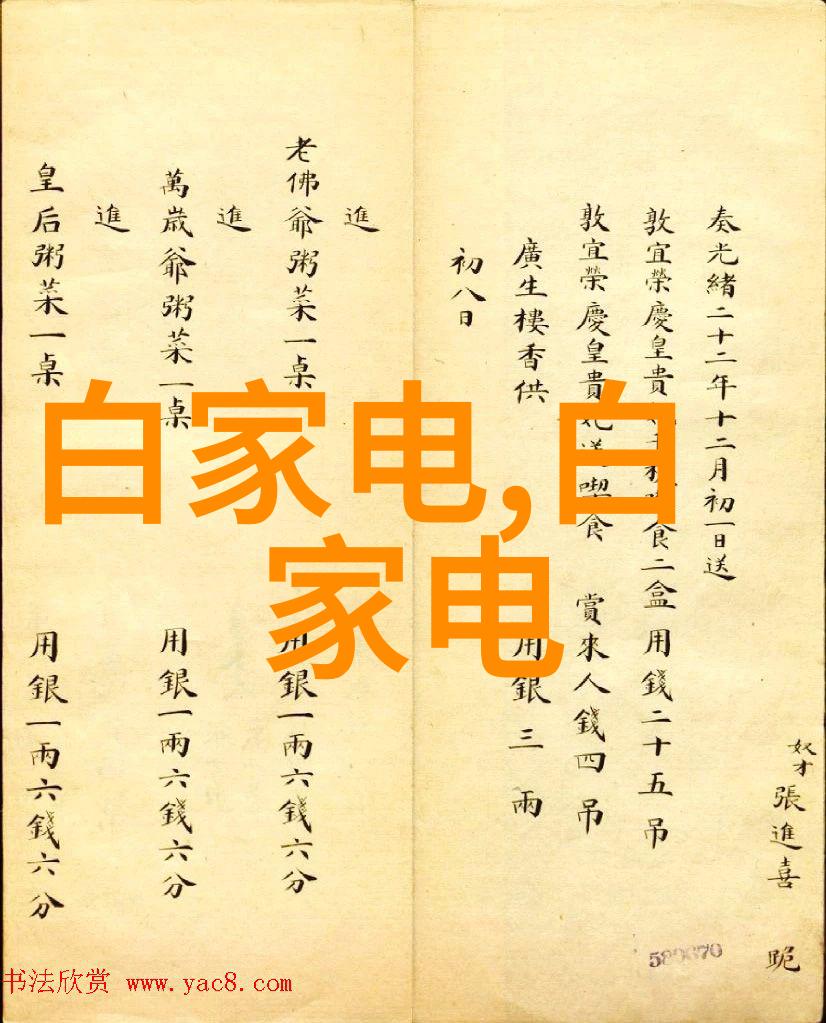 奴才張進喜 跪
奏光緒二十二年十二月初一日送
敦宜榮慶皇貴 食二盒用錢二十五吊
敦宜榮慶皇貴妃送喫食 賞來人錢四吊
廣生樓香供 用銀三兩
初八日
進
老佛爺粥菜一桌 用銀一兩六錢六分
進
萬歲爺粥菜一桌 用銀一兩六錢六分
進
皇后粥菜一桌 用銀一兩六錢六分
白家电,白
家电
书法欣赏 www.yac8.com